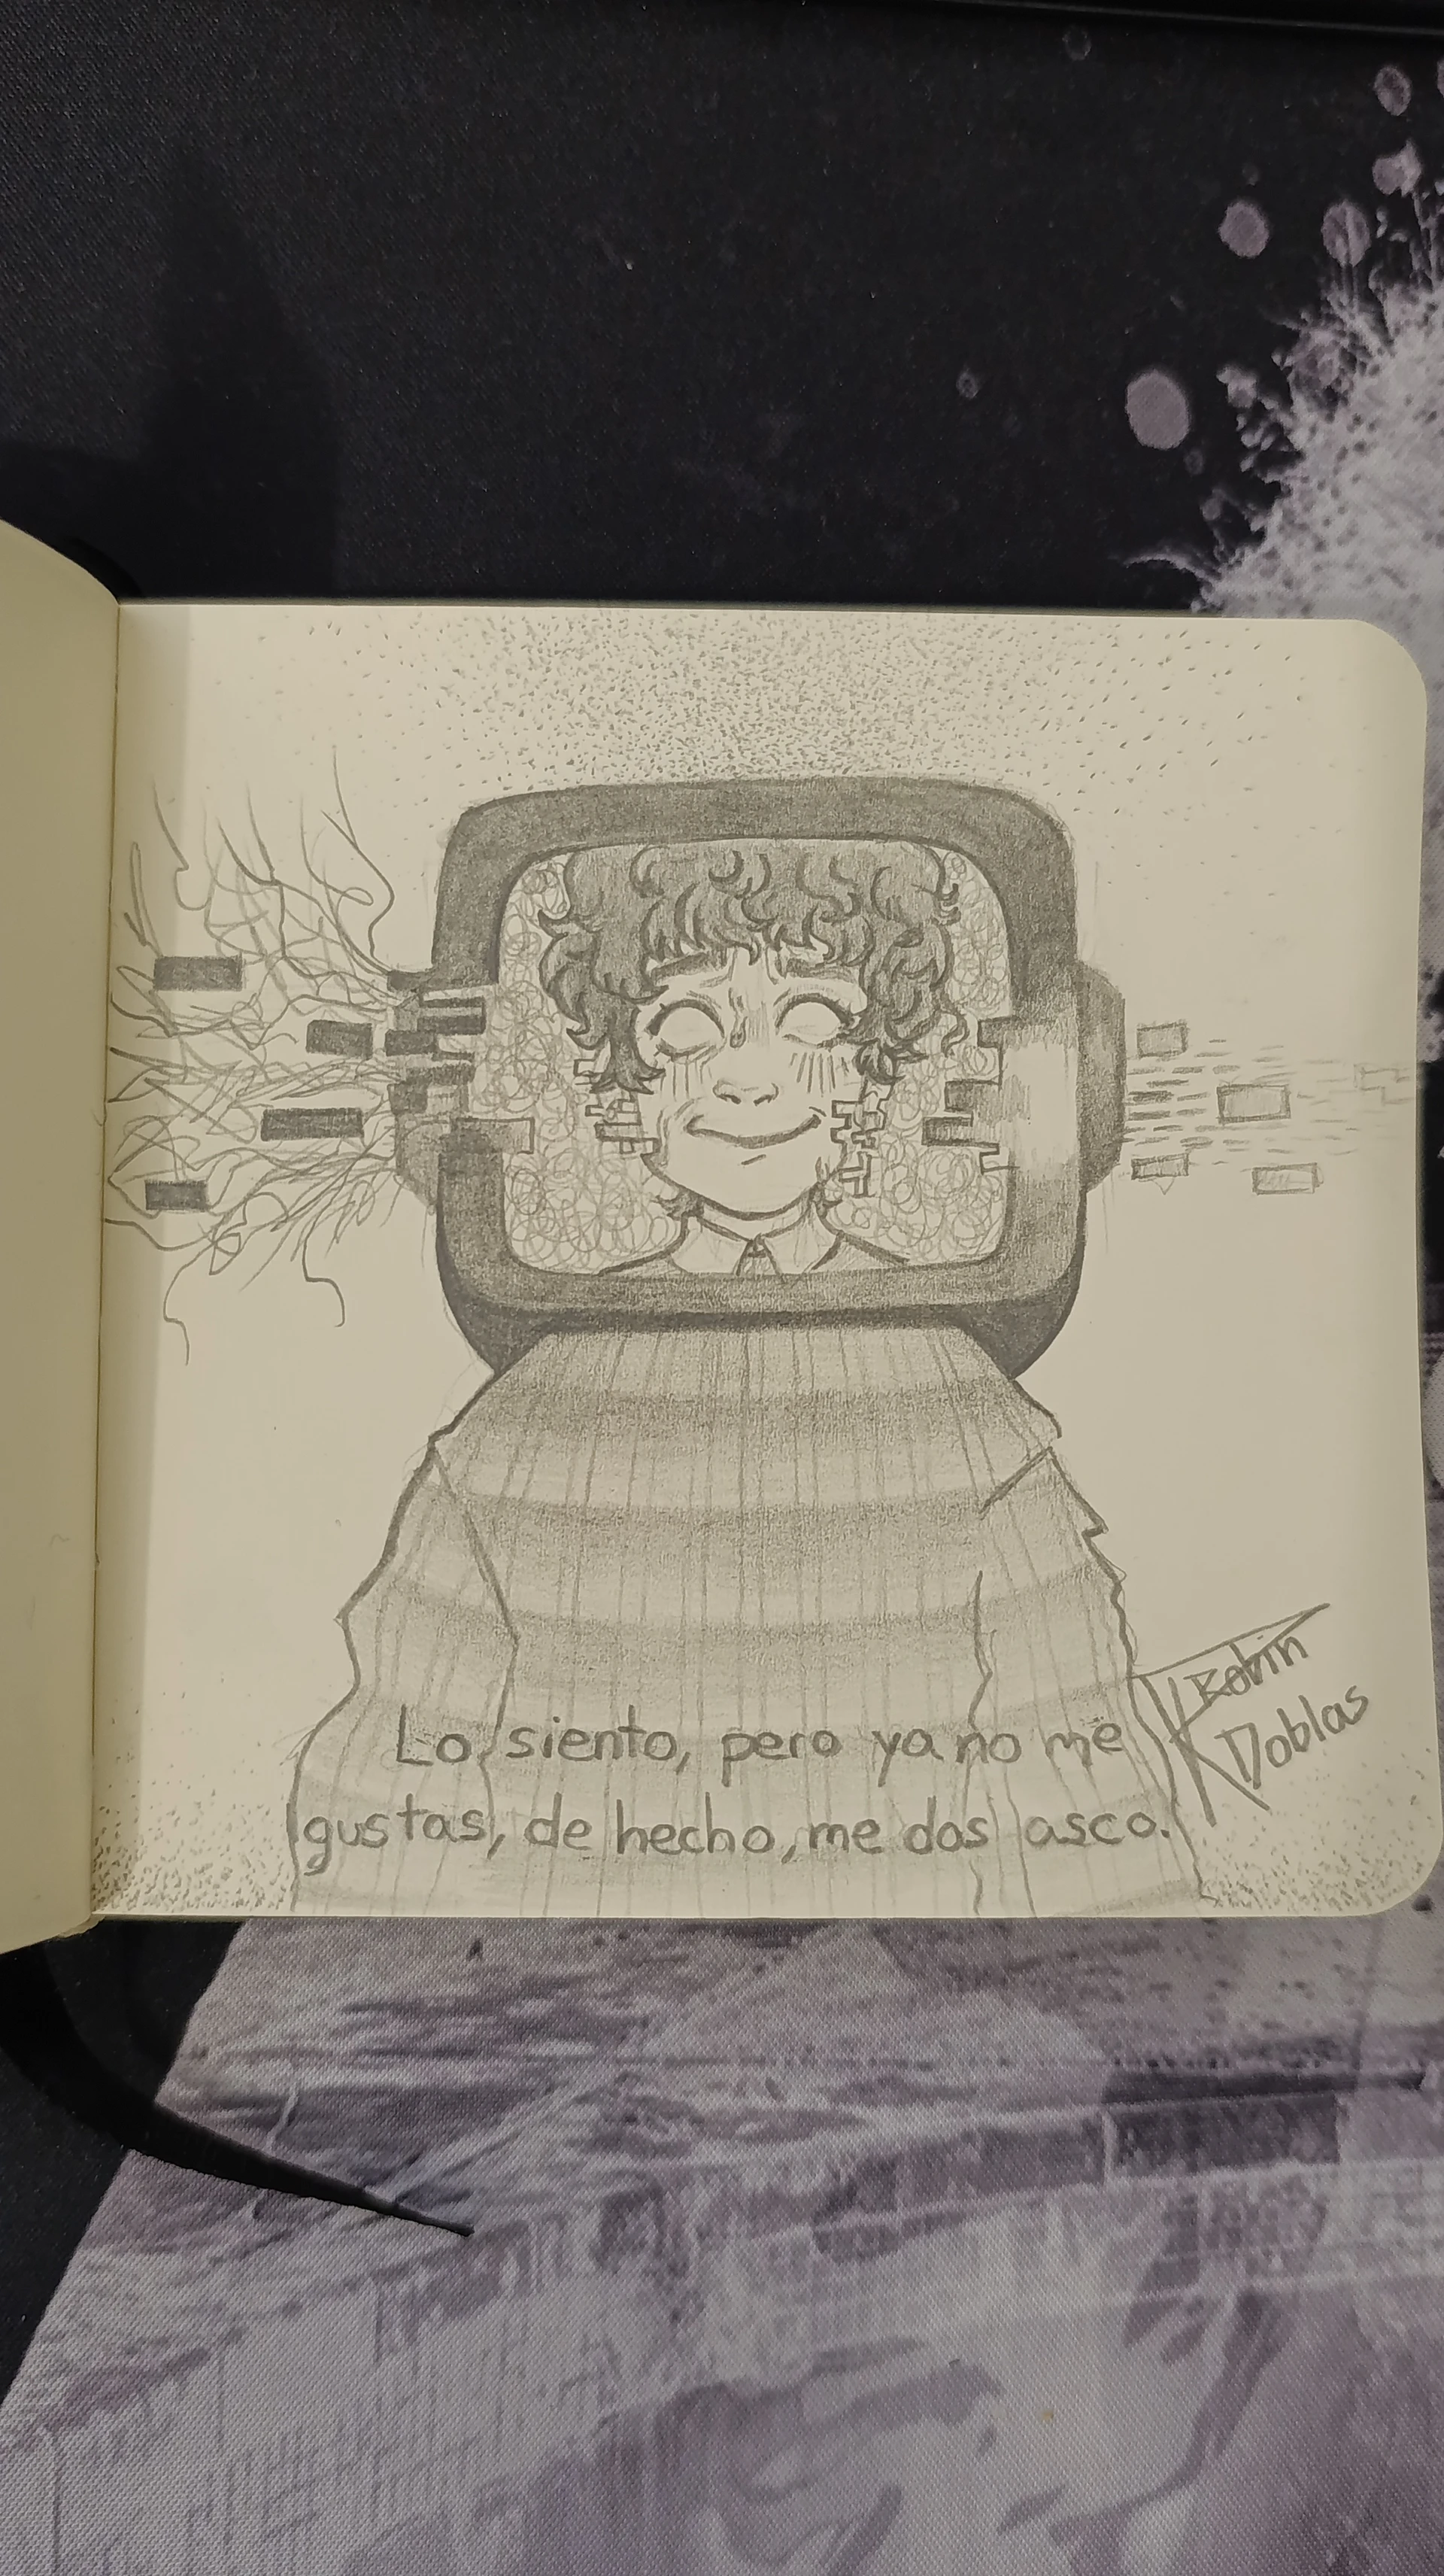 Lo siento, pero ya no me
gustas, de hecho, me das asco.
Robin
Doblas